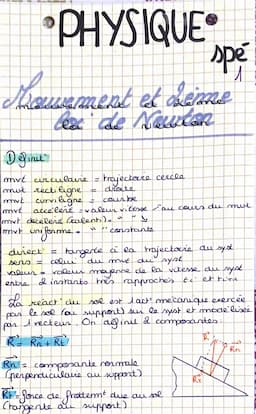 PHYSIQUE
spé
1
Mouvement et 2ème
loi de Newton
① Définit°
mvt circulaire = trajectoire cercle
mvt rectiligne = " droite
mvt curviligne = " courbe
mvt accéléré = valeur vitesse ↗ au cours du mvt
mvt décéléré (ralenti) = " " ↘
mvt uniforme = " " constante
direct° = tangente à la trajectoire du syst
sens = celui du mvt du syst
valeur = valeur moyenne de la vitesse du syst
entre 2 instants très rapprochés ti et ti+1
La réact° du sol est l'act° mécanique exercée
par le sol (ou support) sur le syst et modélisée
par 1 vecteur. On définit 2 composantes.
R = Rn + Rt
Rn = composante normale
(perpendiculaire au support)
Rt = force de frottemt due au sol
(tangente au support)
R
Rn
Rt